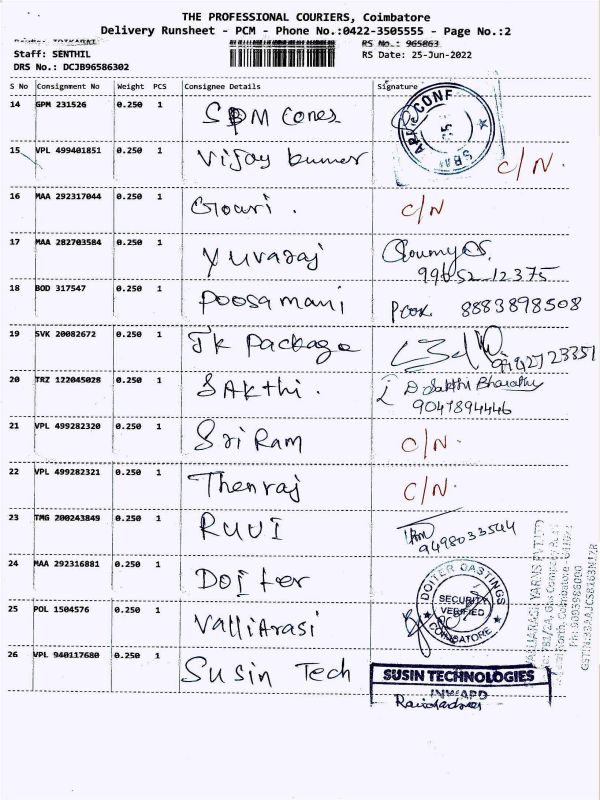 THE PROFESSIONAL COURIERS, Coimbatore
Delivery Runsheet - PCM - Phone No.:0422-3505555 - Page No.:2
RS No.: 965863
Staff: SENTHIL
RS Date: 25-Jun-2022
DRS No.: DCJB96586302
S No Consignment No Weight PCS Consignee Details Signature
14 GPM 231526 0.250 1 SPM Cones
CONF
15 VPL 499401851 0.250 1 Vijay kumar C/N.
16 MAA 292317044 0.250 1 Gowri. C/N
17 MAA 282703584 0.250 1 Yuvaraj
99652 12375
18 BOD 317547 0.250 1 Poosamani 8883898508
19 SVK 20082672 0.250 1 Tk Package
20 TRZ 122045028 0.250 1 SAkthi. D Sakthi Bharathy
9047894446
21 VPL 499282320 0.250 1 Sri Ram C/N.
22 VPL 499282321 0.250 1 Thenraj C/N.
23 TMG 200243849 0.250 1 RUVI
9498033544
24 MAA 292316881 0.250 1 Doiter
DOITER CASTINGS
SECURITY
VERIFIED
COIMBATORE
25 POL 1504576 0.250 1 ValliArasi
26 VPL 940117680 0.250 1 Susin Tech
SUSIN TECHNOLOGIES
INWARD